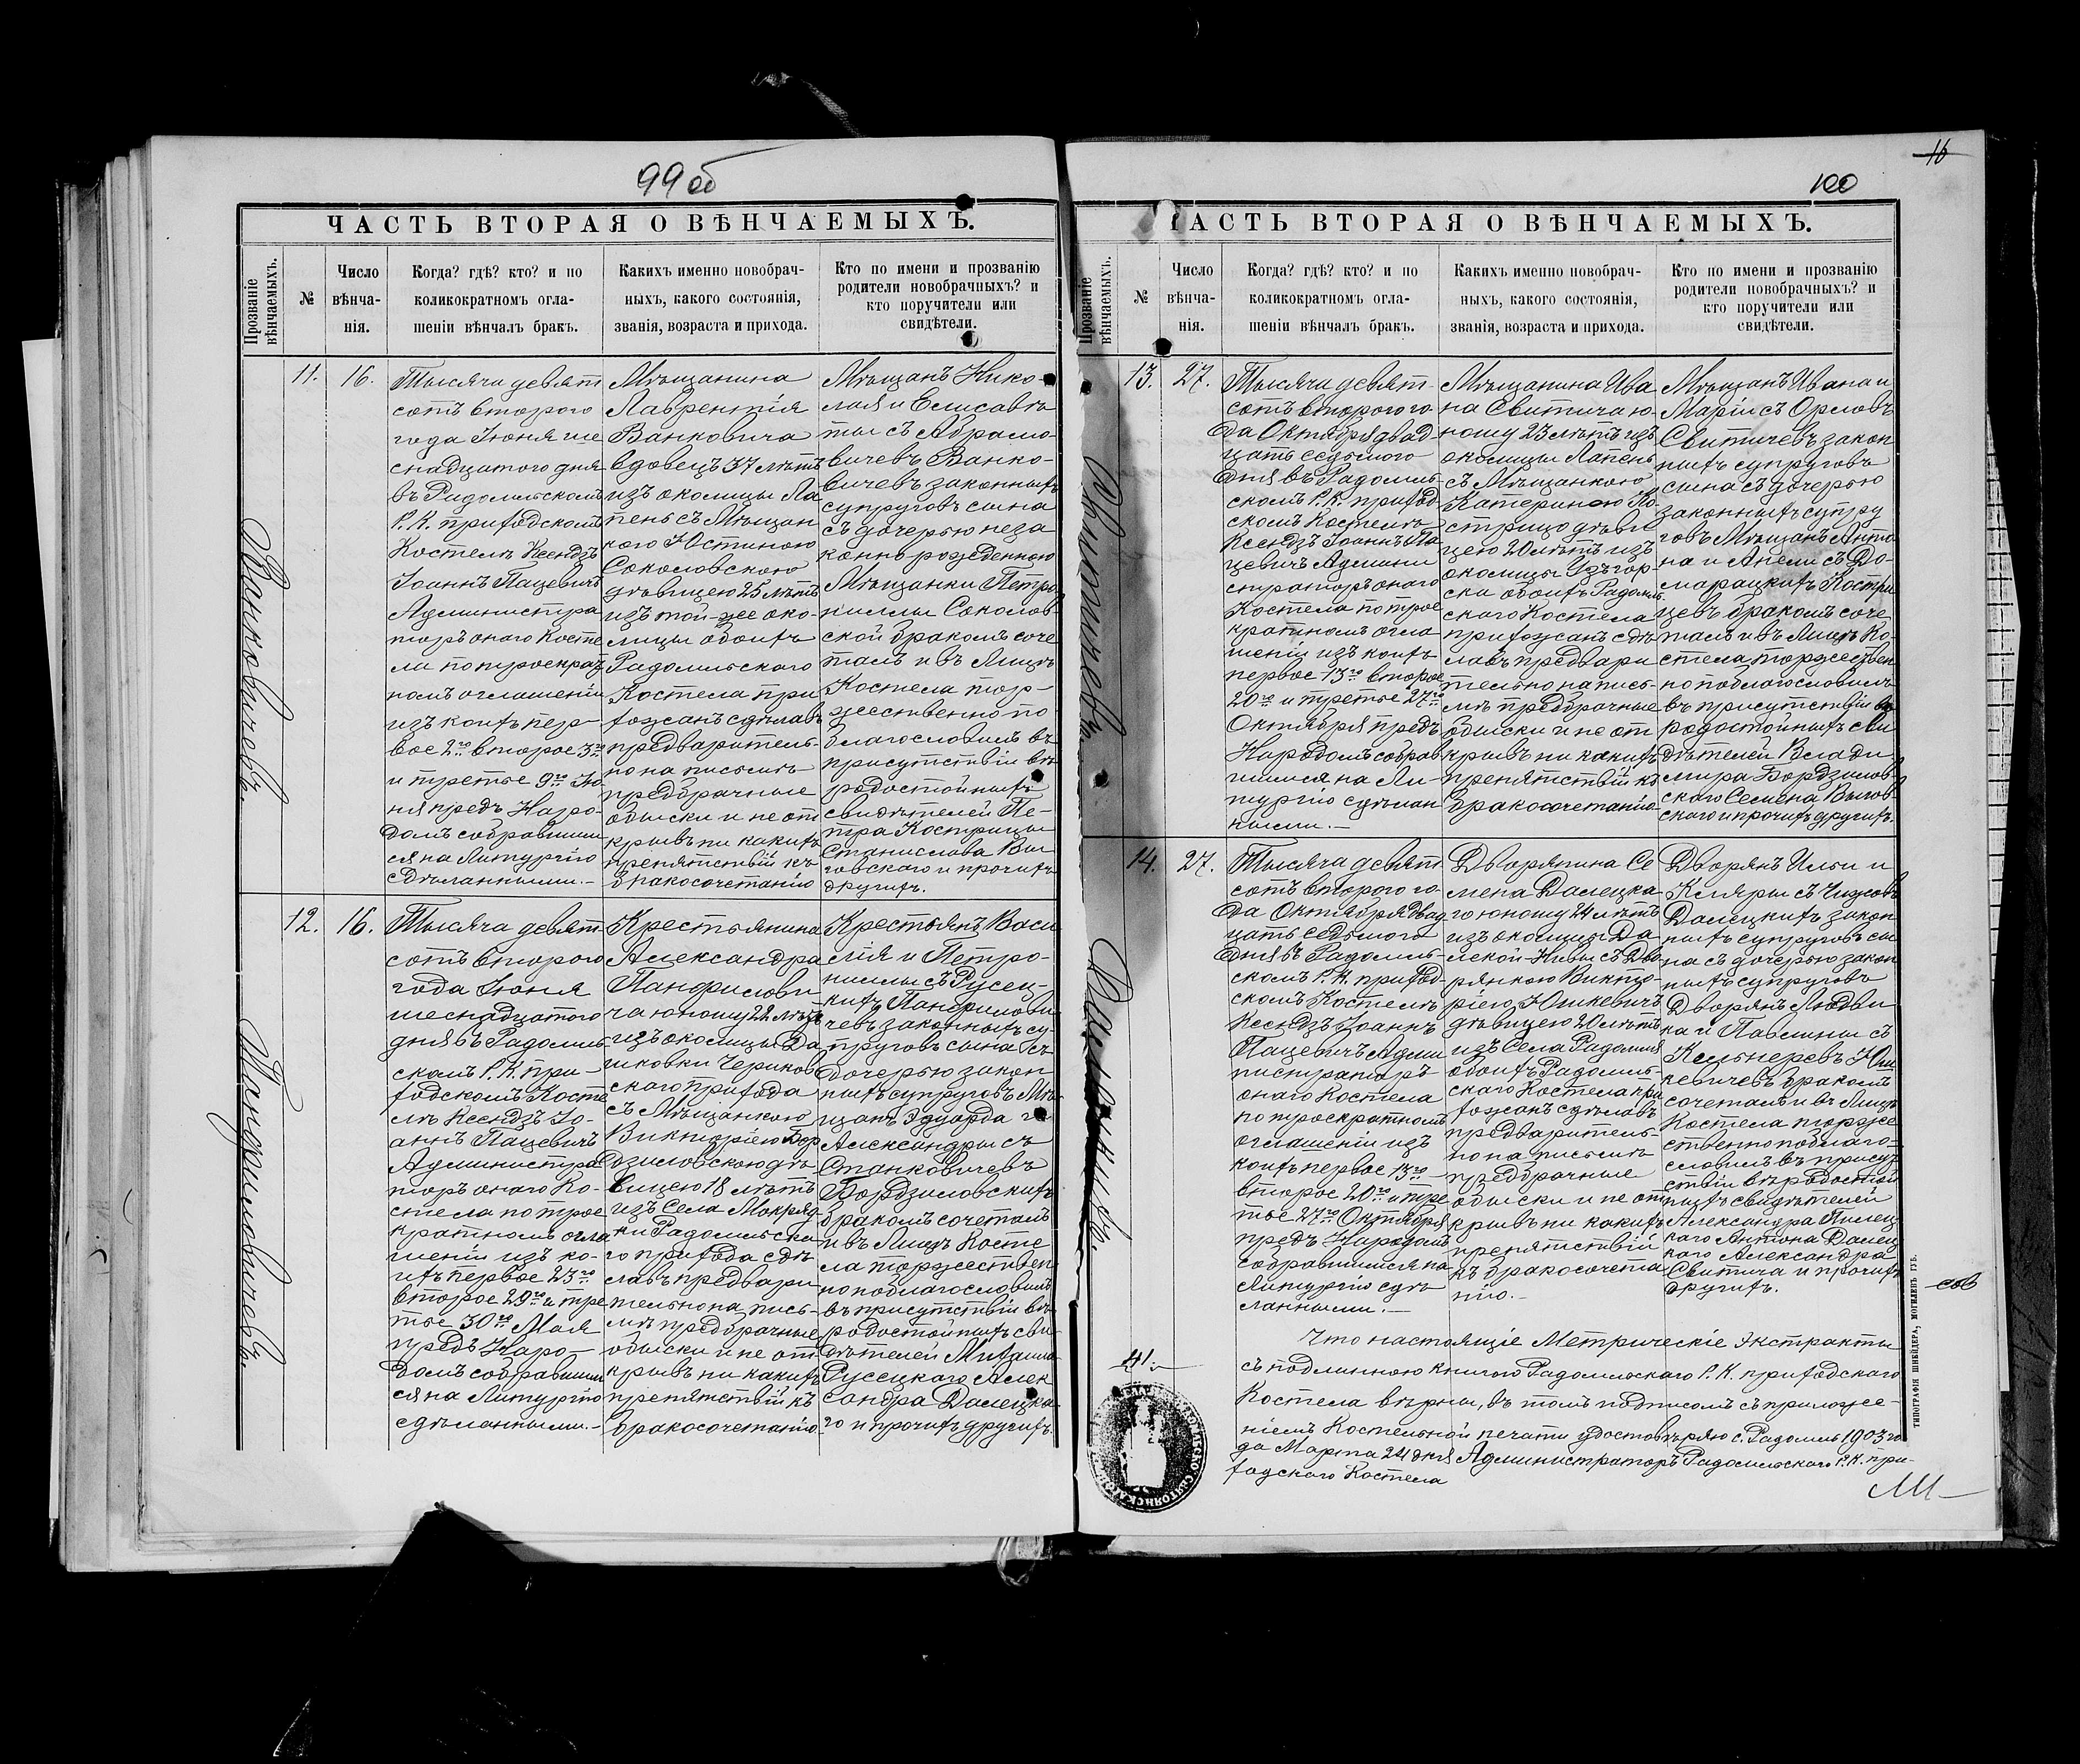 99 об
ЧАСТЬ ВТОРАЯ О ВѢНЧАЕМЫХЪ.
Прозваніе вѣнчаемыхъ.
№
Число
вѣнча-
нія.
Когда? гдѣ? кто? и по
коликократномъ огла-
шеніи вѣнчалъ бракъ.
Какихъ именно новобрач-
ныхъ, какого состоянія,
званія, возраста и прихода.
Кто по имени и прозванію
родители новобрачныхъ? и
кто поручители или
свидѣтели.
Ванковичевъ.
11.
16.
Тысяча девят
сотъ второго
года Іюня ше
снадцатого дня
въ Радомльскомъ
Р. К. приходскомъ
Костелѣ Ксендзъ
Іоаннъ Пацевичъ
Администра
торъ онаго Косте
ла по троекрат
номъ оглашеніи
изъ коихъ пер-
вое 2го второе 3го
и третье 9го Ію
ня предъ Наро-
домъ собравшим
ся на Литургію
сдѣланными.-
Мѣщанина
Лаврентія
Ванковича
вдовецъ 37 лѣтъ
изъ околицы Ла
пень съ Мѣщан
кою Юстиною
Соколовскою
дѣвицею 25 лѣтъ
изъ той-же око-
лицы обоихъ
Радомльского
Костела при
хожанъ сдѣлавъ
предваритель-
но на письмѣ
предбрачные
обыски и не от
крывъ ни какихъ
препятствій къ
бракосочетанію
Мѣщанъ Нико-
лая и Елисавѣ
ты съ Абрамо-
вичевъ Ванко-
вичевъ законныхъ
супруговъ сына
съ дочерью неза
конно рожденною
Мѣщанки Петро
ниллы Соколов-
ской бракомъ соче
талъ и въ Лицѣ
Костела тор-
жественно по-
благословилъ въ
присутствіи вѣ
родостойныхъ
свидѣтелей Пе-
тра Кострицы
Станислава Вы
говскаго и прочихъ
другихъ.
Панфиловичевъ.
12.
16.
Тысяча девят
сотъ второго
года Іюня
шеснадцатого
дня въ Радомль-
скомъ Р. К. при-
ходскомъ Косте
лѣ Ксендзъ Іо-
аннъ Пацевичъ
Администра
торъ онаго Ко-
стела по трое
кратномъ огла
шеніи изъ ко-
ихъ первое 23го
второе 29го и тре
тье 30го Мая
предъ Наро-
домъ собравшим
ся на Литургію
сдѣланными.-
Крестьянина
Александра
Панфилови
ча юношу 22 лѣтъ
изъ околицы Да
шковки Чериков
скаго прихода
съ Мѣщанкою
Викторіею Бор
дзиловскою дѣ-
вицею 18 лѣтъ
изъ Села Мокряд
ки Радомльска
го прихода сдѣ
лавъ предвари
тельно на пись-
мѣ предбрачные
обыски и не от-
крывъ ни какихъ
препятствій къ
бракосочетанію
Крестьянъ Васи
лія и Петро-
ниллы съ Русец-
кихъ Панфилови
чевъ законныхъ су-
пруговъ сына съ
дочерью закон
ныхъ супруговъ Мѣ-
щанъ Эдуарда и
Александры съ
Станковичевъ
Бордзиловскихъ
бракомъ сочеталъ
и въ Лицѣ Косте
ла торжествен
но поблагословилъ
въ присутствіи вѣ-
родостойныхъ сви
дѣтелей Михаила
Русецкаго Алек
сандра Далецка-
го и прочихъ другихъ.
16
100
ЧАСТЬ ВТОРАЯ О ВѢНЧАЕМЫХЪ.
Прозваніе вѣнчаемыхъ.
№
Число
вѣнча-
нія.
Когда? гдѣ? кто? и по
коликократномъ огла-
шеніи вѣнчалъ бракъ.
Какихъ именно новобрач-
ныхъ, какого состоянія,
званія, возраста и прихода.
Кто по имени и прозванію
родители новобрачныхъ? и
кто поручители или
свидѣтели.
Свитичевъ.
13.
27.
Тысяча девят-
сотъ второго го
да Октября двад
цать седьмого
дня въ Радомль-
скомъ Р. К. приход
скомъ Костелѣ
Ксендзъ Іоаннъ Па
цевичъ Админи
страторъ онаго
Костела по трое
кратномъ огла
шеніи изъ коихъ
первое 13го второе
20го и третье 27го
Октября предъ
Народомъ собрав
шимся на Ли-
тургію сдѣлан
ными.-
Мѣщанина Ива
на Свитича ю-
ношу 23 лѣтъ изъ
околицы Лапень
съ Мѣщанкою
Катериною Ко-
стрицо дѣви
цею 20 лѣтъ изъ
околицы Узгор-
ска обоихъ Радомль-
скаго Костела
прихожанъ сдѣ-
лавъ предвари
тельно на пись-
мѣ предбрачные
обыски и не от
крывъ ни какихъ
препятствій къ
бракосочетанію
Мѣщанъ Ивана и
Маріи съ Орловъ
Свитичевъ закон
ныхъ супруговъ
сына съ дочерью
законныхъ супру
говъ Мѣщанъ Анто
на и Анели съ До-
марацкихъ Костри
цевъ бракомъ соче
талъ и въ Лицѣ Ко-
стела торжествен
но поблагословилъ
въ присутствіи вѣ
родостойныхъ сви
дѣтелей Влади
мира Бордзилов-
скаго Семена Выгов-
скаго и прочихъ другихъ.
Далецкихъ.
14.
27.
Тысяча девят
сотъ второго го-
да Октября двад
цать седьмого
дня въ Радомль-
скомъ Р. К. приход-
скомъ Костелѣ
Ксендзъ Іоаннъ
Пацевичъ Адми
нистраторъ
онаго Костела
по троекратномъ
оглашеніи изъ
коихъ первое 13го
второе 20го и тре
тье 27го Октября
предъ Народомъ
собравшимся на
Литургію сдѣ
ланными.-
Дворянина Се
мена Далецка
го юношу 24 лѣтъ
изъ околицы Да
лекой-Нивы съ Дво
рянкою Викто-
ріею Юшкевичъ
дѣвицею 20 лѣтъ
изъ Села Радомля
обоихъ Радомль-
скаго Костела при
хожанъ сдѣлавъ
предваритель-
но на письмѣ
предбрачные
обыски и не от
крывъ ни какихъ
препятствій
къ бракосочета
нію.-
Дворянъ Ильи и
Кляры съ Чижовъ
Далецкихъ закон
ныхъ супруговъ сы
на съ дочерью закон
ныхъ супруговъ
Дворянъ Людви
ка и Павлины съ
Кельнеревъ Юш
кевичевъ бракомъ
сочеталъ и въ Лицѣ
Костела торже
ственно поблаго-
словилъ въ присут
ствіи вѣродостой
ныхъ свидѣтелей
Александра Пилец
каго Антона Далец
каго Александра
Свитича и прочихъ
другихъ.
Что настоящіе Метрическіе Экстракты
съ подлинною книгою Радомльскаго Р. К. приходскаго
Костела вѣрны, въ томъ подписомъ съ приложе-
ніемъ Костельной печати удостовѣряю с. Радомль 1903 го
да Марта 24 дня Администраторъ Радомльскаго Р. К. при-
ходского Костела
41.
ТИПОГРАФІЯ ШНЕЙДЕРА, МОГИЛЕВЪ ГУБ.